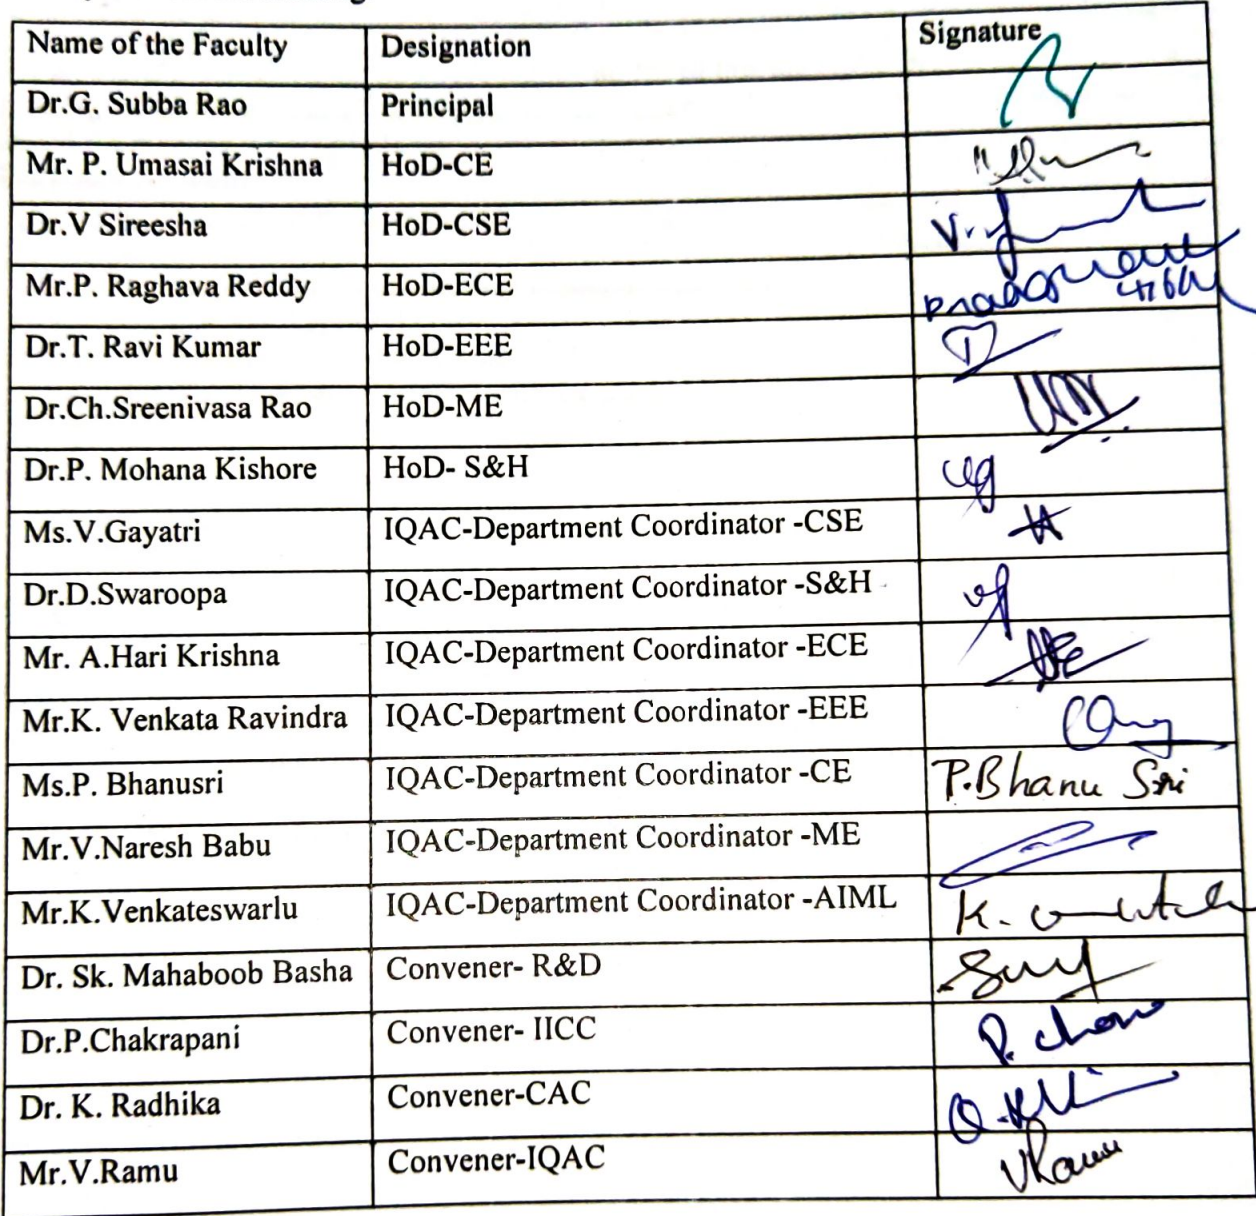 Name of the Faculty Designation Signature
Dr.G. Subba Rao Principal
Mr. P. Umasai Krishna HoD-CE
Dr.V Sireesha HoD-CSE
Mr.P. Raghava Reddy HoD-ECE
Dr.T. Ravi Kumar HoD-EEE
Dr.Ch.Sreenivasa Rao HoD-ME
Dr.P. Mohana Kishore HoD- S&H
Ms.V.Gayatri IQAC-Department Coordinator -CSE
Dr.D.Swaroopa IQAC-Department Coordinator -S&H
Mr. A.Hari Krishna IQAC-Department Coordinator -ECE
Mr.K. Venkata Ravindra IQAC-Department Coordinator -EEE
Ms.P. Bhanusri IQAC-Department Coordinator -CE P.Bhanu Sri
Mr.V.Naresh Babu IQAC-Department Coordinator -ME
Mr.K.Venkateswarlu IQAC-Department Coordinator -AIML
Dr. Sk. Mahaboob Basha Convener- R&D
Dr.P.Chakrapani Convener- IICC
Dr. K. Radhika Convener-CAC
Mr.V.Ramu Convener-IQAC VRamu